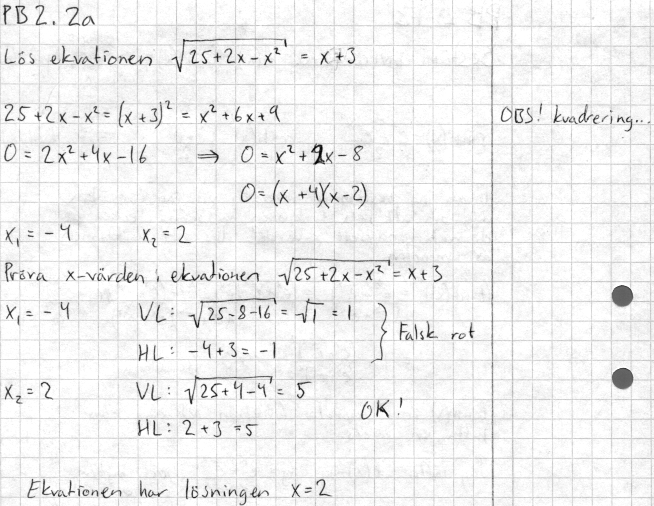 PB2.2a
Lös ekvationen √(25+2x-x²) = x+3
25+2x-x² = (x+3)² = x²+6x+9 OBS! kvadrering...
0 = 2x²+4x-16 ⇒ 0 = x²+2x-8
0 = (x+4)(x-2)
x₁ = -4 x₂ = 2
Pröva x-värden i ekvationen √(25+2x-x²) = x+3
x₁ = -4 VL: √(25-8-16) = √1 = 1
HL: -4+3 = -1 } Falsk rot
x₂ = 2 VL: √(25+4-4) = 5
OK!
HL: 2+3 = 5
Ekvationen har lösningen x=2